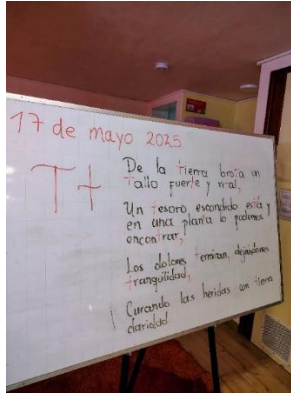 17 de mayo 2025
T t
De la tierra brota un
Tallo fuerte y
Un Tesoro escondido está y
en una planta lo podemos
encontrar,
Los dolores terminan, dejándonos
tranquilidad,
Curando las heridas con tierna
claridad